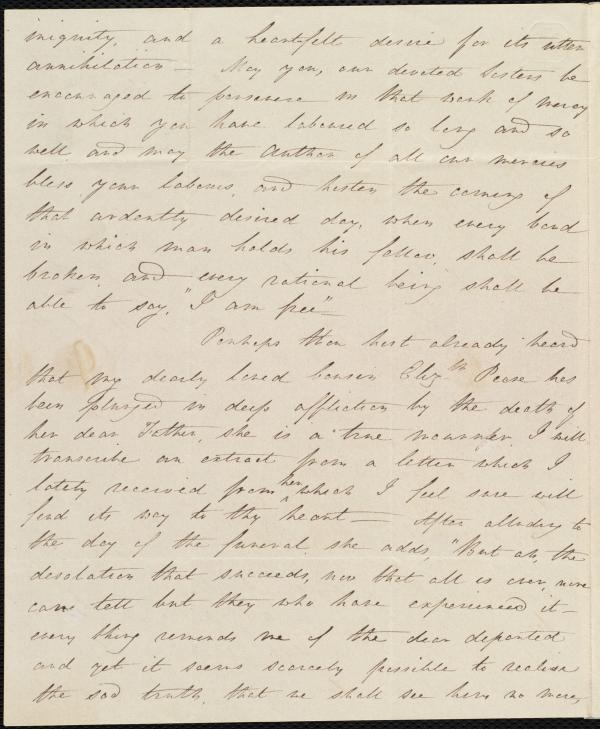 iniquity, and a heartfelt desire for its utter
annihilation — May you, our devoted Sisters be
encouraged to persevere in that work of mercy
in which you have laboured so long and so
well and may the Author of all our mercies
bless your labours, and hasten the coming of
that ardently desired day, when every bond
in which man holds his fellow, shall be
broken, and every rational being shall be
able to say, "I am free" —
Perhaps thou hast already heard
that my dearly loved cousin Eliz.th Pease has
been plunged in deep affliction by the death of
her dear Father, she is a true mourner, I will
transcribe an extract from a letter which I
lately received from her, which I feel sure will
find its way to thy heart — After alluding to
the day of the funeral she adds, "But oh, the
desolation that succeeds, now that all is over, none
can tell but they who have experienced it —
every thing reminds me of the dear departed
and yet it seems scarcely possible to realise
the sad truth, that we shall see him no more,